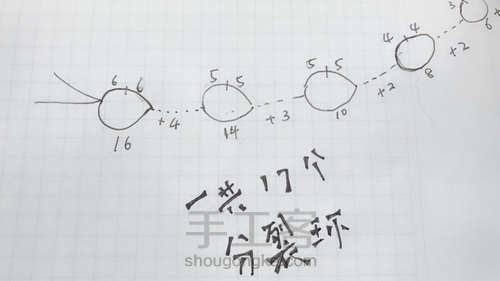 3 6 +
4 4 +2 8
5 5 +2 10
5 5 +3 14
6 6 +4 16
一共17个
分裂环
手工客
shougongke.com